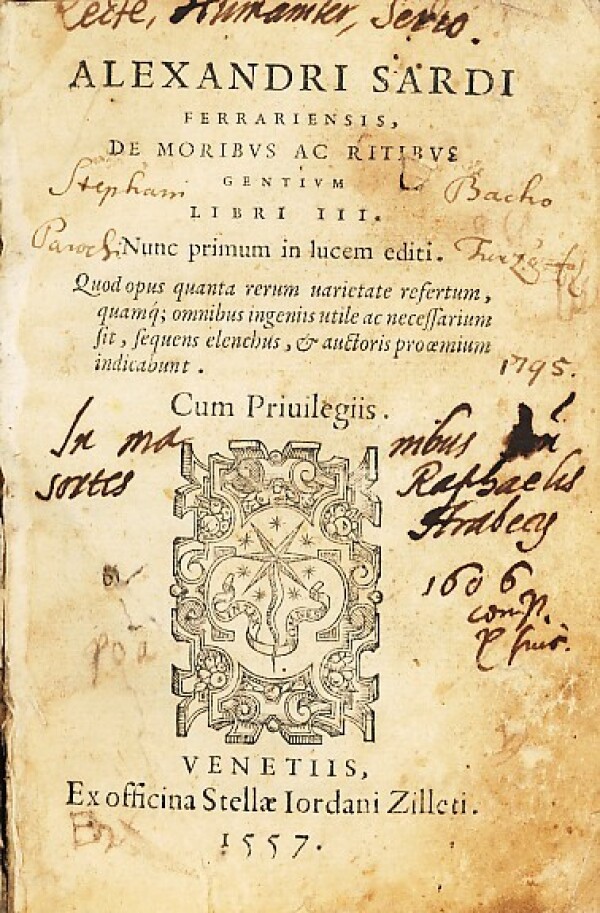 Recte, Humaniter, Serio.
ALEXANDRI SARDI
FERRARIENSIS,
DE MORIBVS AC RITIBVS
GENTIVM
Stephani Bacho
LIBRI III.
Parochi
Nunc primum in lucem editi.
Quod opus quanta rerum uarietate refertum,
quamq́; omnibus ingeniis utile ac necessarium
sit, sequens elenchus, & auctoris proœmium
indicabunt.
1795.
Cum Priuilegiis.
In ma nibus
sortes Raphaelis
1606
comp.
VENETIIS,
Ex officina Stellæ Iordani Zilleti.
1557.